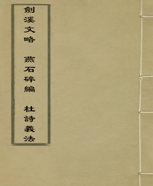 劍溪文略　燕石碎編　杜詩義法